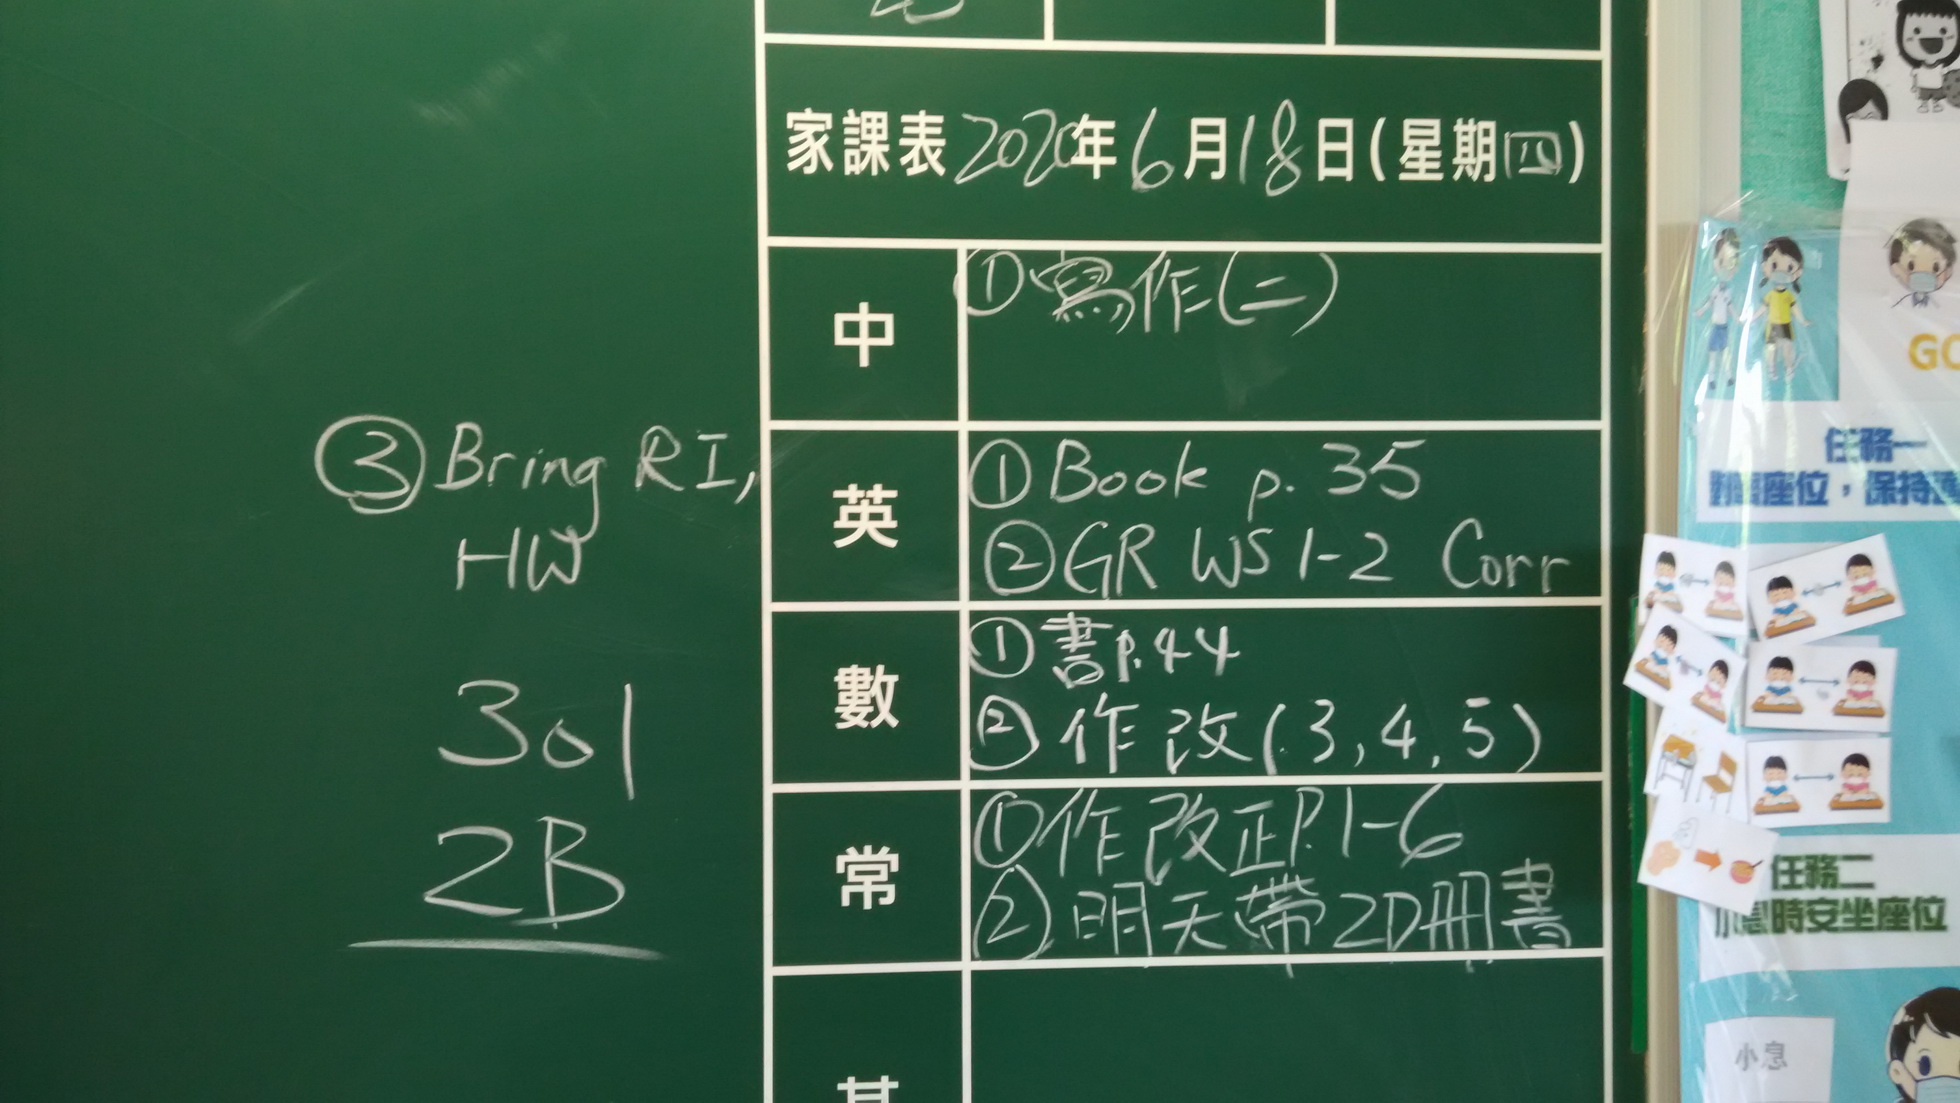 家課表2020年6月18日(星期四)
中
①寫作(二)
英
①Book p. 35
②GR WS 1-2 Corr
③Bring RI,
HW
數
①書p.44
②作改(3,4,5)
常
①作改正P.1-6
②明天帶2D冊書
301
2B
GO
任務一
座位，保持
任務二
小息時安坐座位
小息